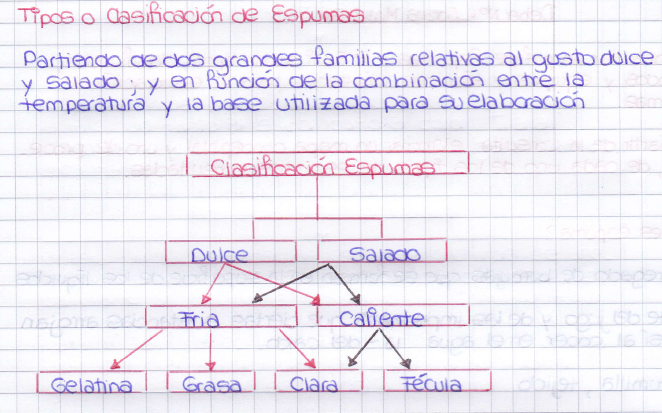 Tipos o Clasificación de Espumas
Partiendo de dos grandes familias relativas al gusto dulce
y salado; y en función de la combinación entre la
temperatura y la base utilizada para su elaboración
Clasificación Espumas
Dulce Salado
Fria Caliente
Gelatina Grasa Clara Fécula